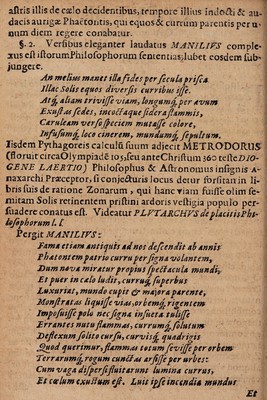 astris illis de cælo decidentibus, tempore illius indocti & au-
dacis aurigæ Phaëtontis, qui equos & currum parentis per u-
num diem regere conabatur.
§. 2. Versibus eleganter laudatus MANILIUS comple-
xus est istorum Philosophorum sententias; lubet eosdem sub-
jungere.
An melius manet illa fides per secula prisca
Illac Solis equos diversis curribus isse.
Atq́; aliam trivisse viam, longumq́; per ævum
Exustas sedes, incoctaque sidera flammis,
Cæruleam versô speciem mutasse colore,
Infusumq́; loco cinerem, mundumq́; sepultum.
Iisdem Pythagoreis calculũ suum adjecit METRODORUS
(floruit circa Olympiadẽ 103, seu ante Christum 360 teste DIO-
GENE LAERTIO) Philosophus & Astronomus insignis A-
naxarchi Præceptor, si conjecturis locus detur forsitan in li-
bris suis de ratione Zonarum, qui hanc viam fuisse olim se-
mitam Solis retinentem pristini ardoris vestigia populo per-
suadere conatus est. Videatur PLUTARCHUS de placitis Phi-
losophorum l.
Pergit MANILIUS:
Fama etiam antiquis ad nos descendit ab annis
Phaëtontem patrio curru per signa volantem,
Dum nova miratur propius spectacula mundi,
Et puer in cælo ludit, curruq́; superbus
Luxuriat, mundo cupit & majora parente,
Monstratas liquisse vias, orbemq́; rigentem
Imposuisse polo nec signa insueta tulisse
Errantes nutu flammas, currumq́; solutum
Deflexum solito cursu, curvisq́; quadrigis
Quod querimur, flammas totum sevisse per orbem
Terrarumq́; rogum cunctas arsisse per urbes:
Cum vaga dispersi fluitarunt lumina currus,
Et cælum exustum est. Luit ipse incendia mundus
Et